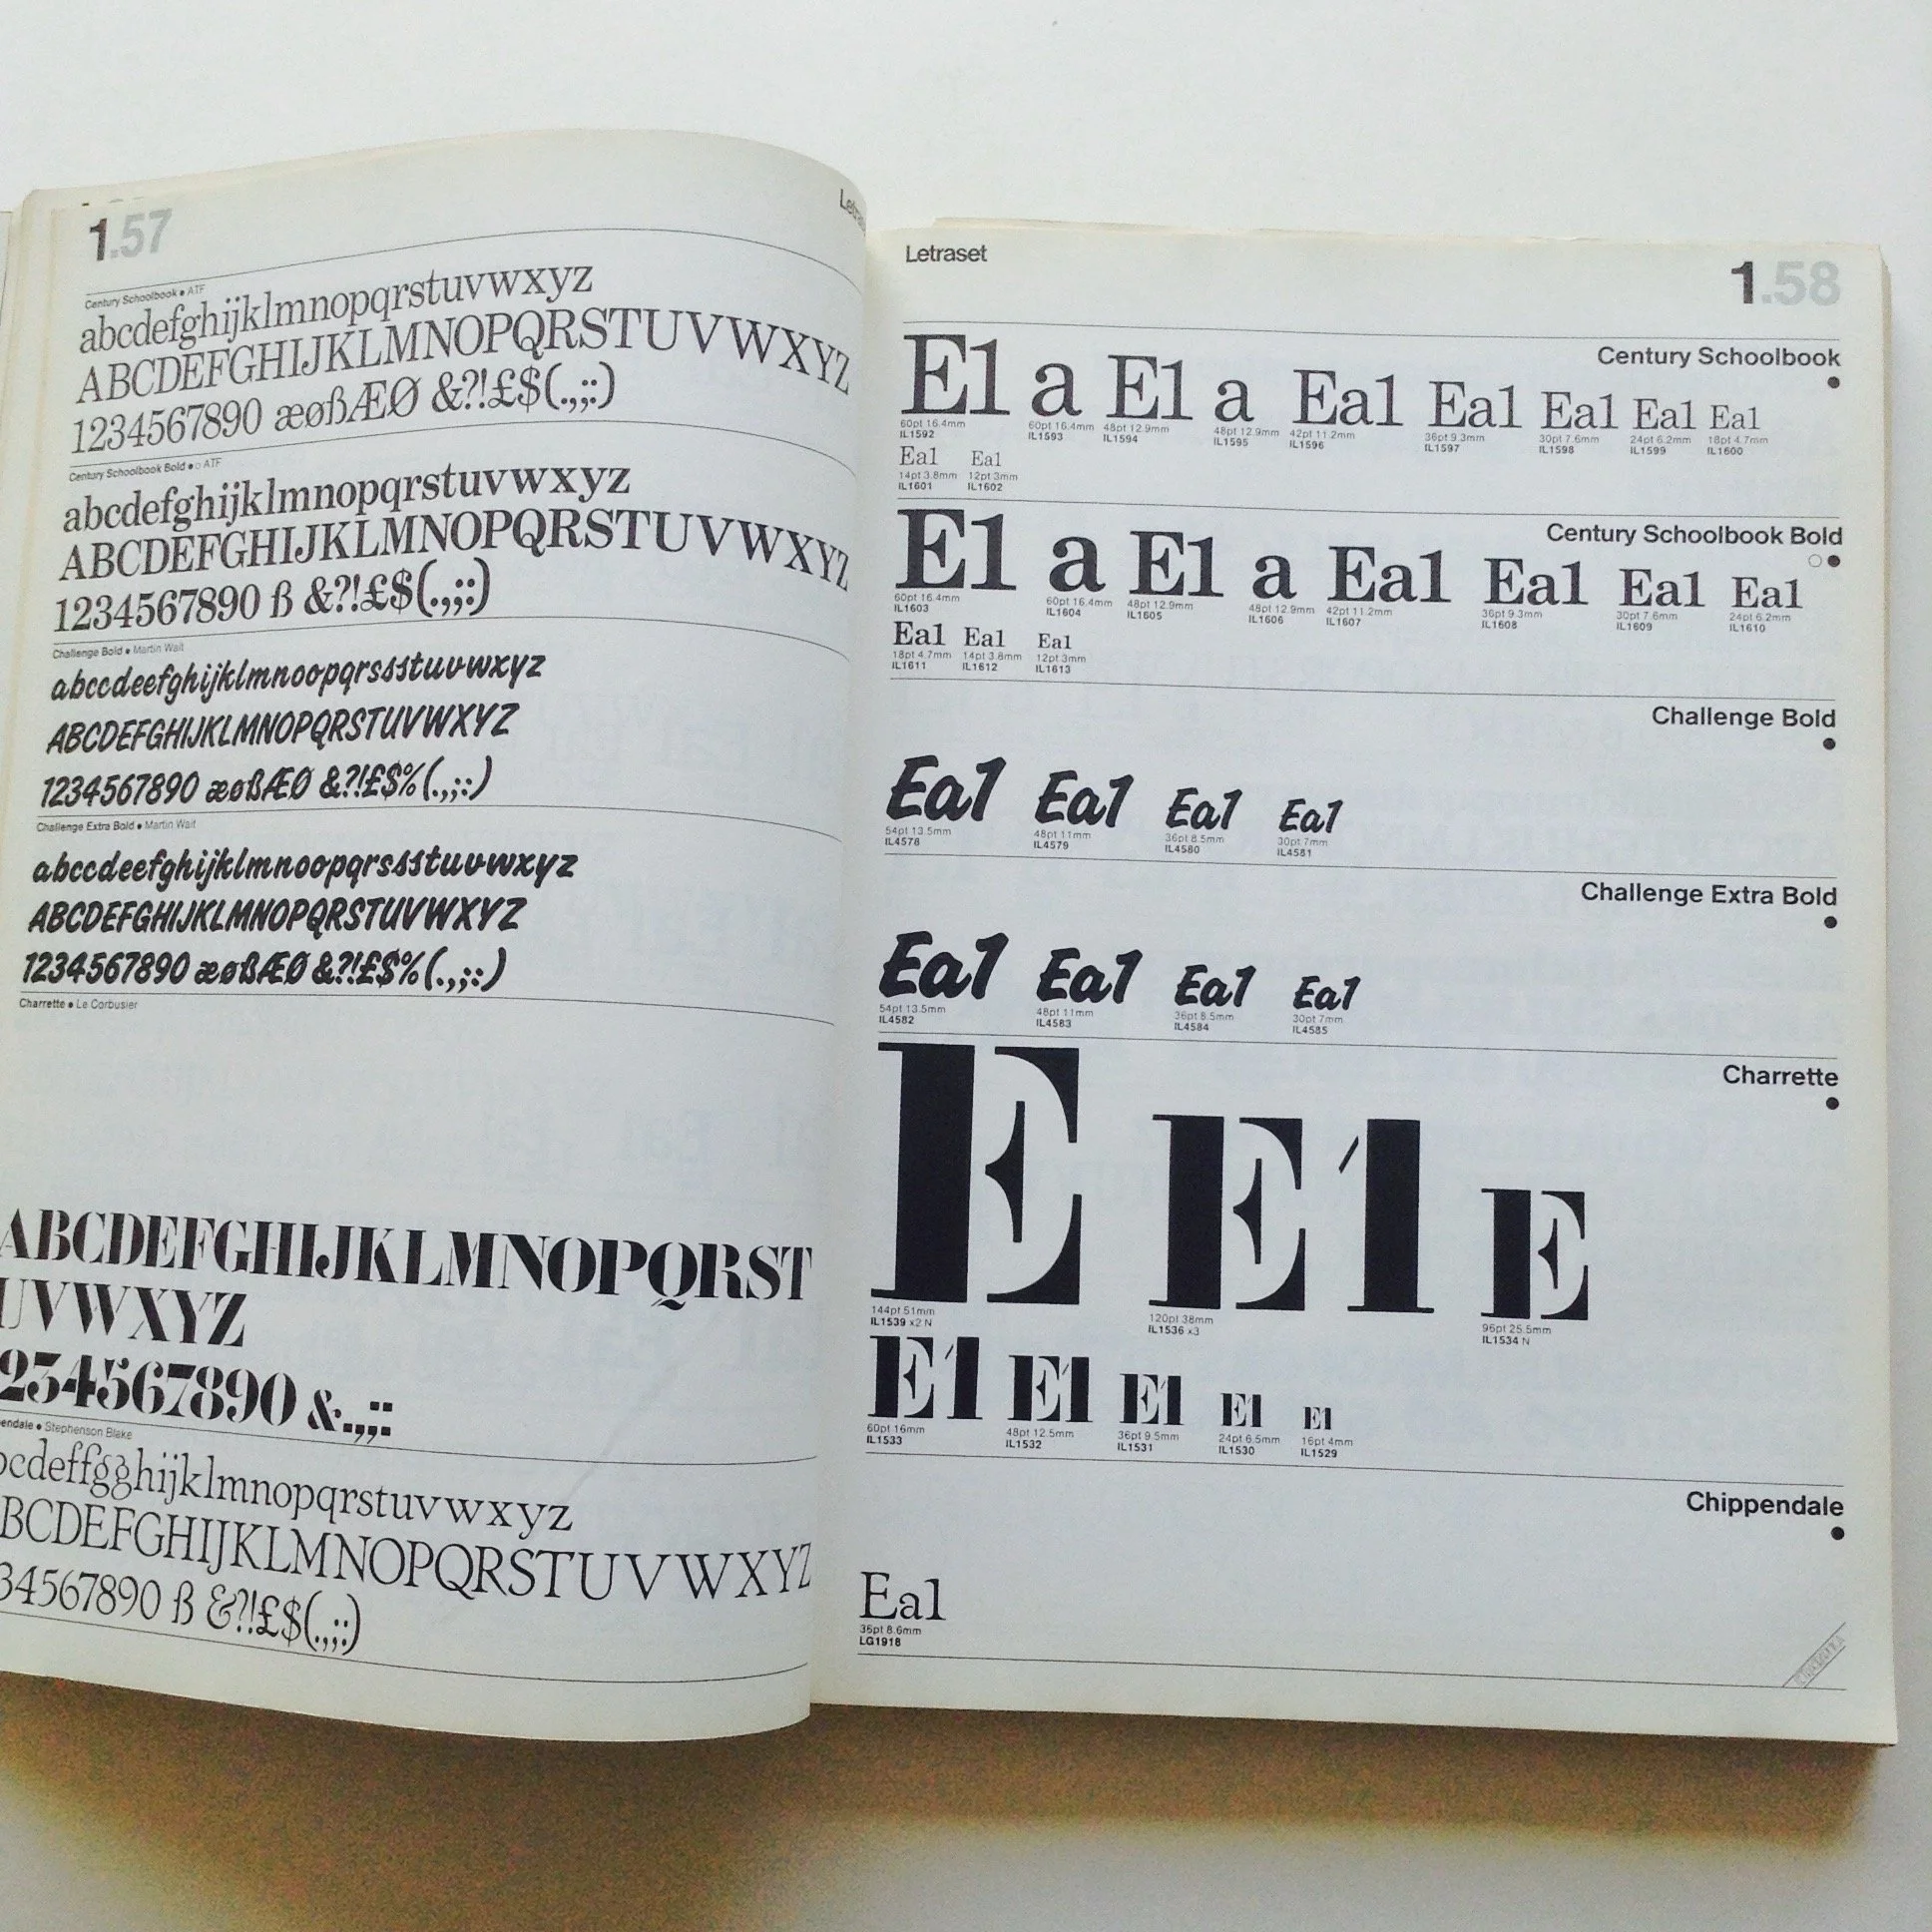 1.57
Century Schoolbook ● ATF
abcdefghijklmnopqrstuvwxyz
ABCDEFGHIJKLMNOPQRSTUVWXYZ
1234567890 æøßÆØ &?!£$(.,;:)
Century Schoolbook Bold ●○ ATF
abcdefghijklmnopqrstuvwxyz
ABCDEFGHIJKLMNOPQRSTUVWXYZ
1234567890 ß &?!£$(.,;:)
Challenge Bold ● Martin Wait
abccdeefghijklmnoopqrsssstuvwxyz
ABCDEFGHIJKLMNOPQRSTUVWXYZ
1234567890 æøßÆØ &?!£$%(.,;:)
Challenge Extra Bold ● Martin Wait
abccdeefghijklmnoopqrsssstuvwxyz
ABCDEFGHIJKLMNOPQRSTUVWXYZ
1234567890 æøßÆØ &?!£$%(.,;:)
Charrette ● Le Corbusier
ABCDEFGHIJKLMNOPQRST
UVWXYZ
234567890 &.,;:
endale ● Stephenson Blake
cdeffgghijklmnopqrstuvwxyz
BCDEFGHIJKLMNOPQRSTUVWXYZ
34567890 ß &?!£$(.,;:)
Letraset
1.58
Century Schoolbook
E1 a E1 a Ea1 Ea1 Ea1 Ea1 Ea1
60pt 16.4mm 60pt 16.4mm 48pt 12.9mm 48pt 12.9mm 42pt 11.2mm 36pt 9.3mm 30pt 7.6mm 24pt 6.2mm 18pt 4.7mm
IL1592 IL1593 IL1594 IL1595 IL1596 IL1597 IL1598 IL1599 IL1600
Ea1 Ea1
14pt 3.8mm 12pt 3mm
IL1601 IL1602
Century Schoolbook Bold
E1 a E1 a Ea1 Ea1 Ea1 Ea1
60pt 16.4mm 60pt 16.4mm 48pt 12.9mm 48pt 12.9mm 42pt 11.2mm 36pt 9.3mm 30pt 7.6mm 24pt 6.2mm
IL1603 IL1604 IL1605 IL1606 IL1607 IL1608 IL1609 IL1610
Ea1 Ea1 Ea1
18pt 4.7mm 14pt 3.8mm 12pt 3mm
IL1611 IL1612 IL1613
Challenge Bold
Ea1 Ea1 Ea1 Ea1
54pt 13.5mm 48pt 11mm 36pt 8.5mm 30pt 7mm
IL4578 IL4579 IL4580 IL4581
Challenge Extra Bold
Ea1 Ea1 Ea1 Ea1
54pt 13.5mm 48pt 11mm 36pt 8.5mm 30pt 7mm
IL4582 IL4583 IL4584 IL4585
Charrette
E E1 E
144pt 51mm 120pt 38mm 96pt 25.5mm
IL1539 x2 N IL1536 x3 IL1534 N
E1 E1 E1 E1 E1
60pt 16mm 48pt 12.5mm 36pt 9.5mm 24pt 6.5mm 16pt 4mm
IL1533 IL1532 IL1531 IL1530 IL1529
Chippendale
Ea1
36pt 8.6mm
LG1918